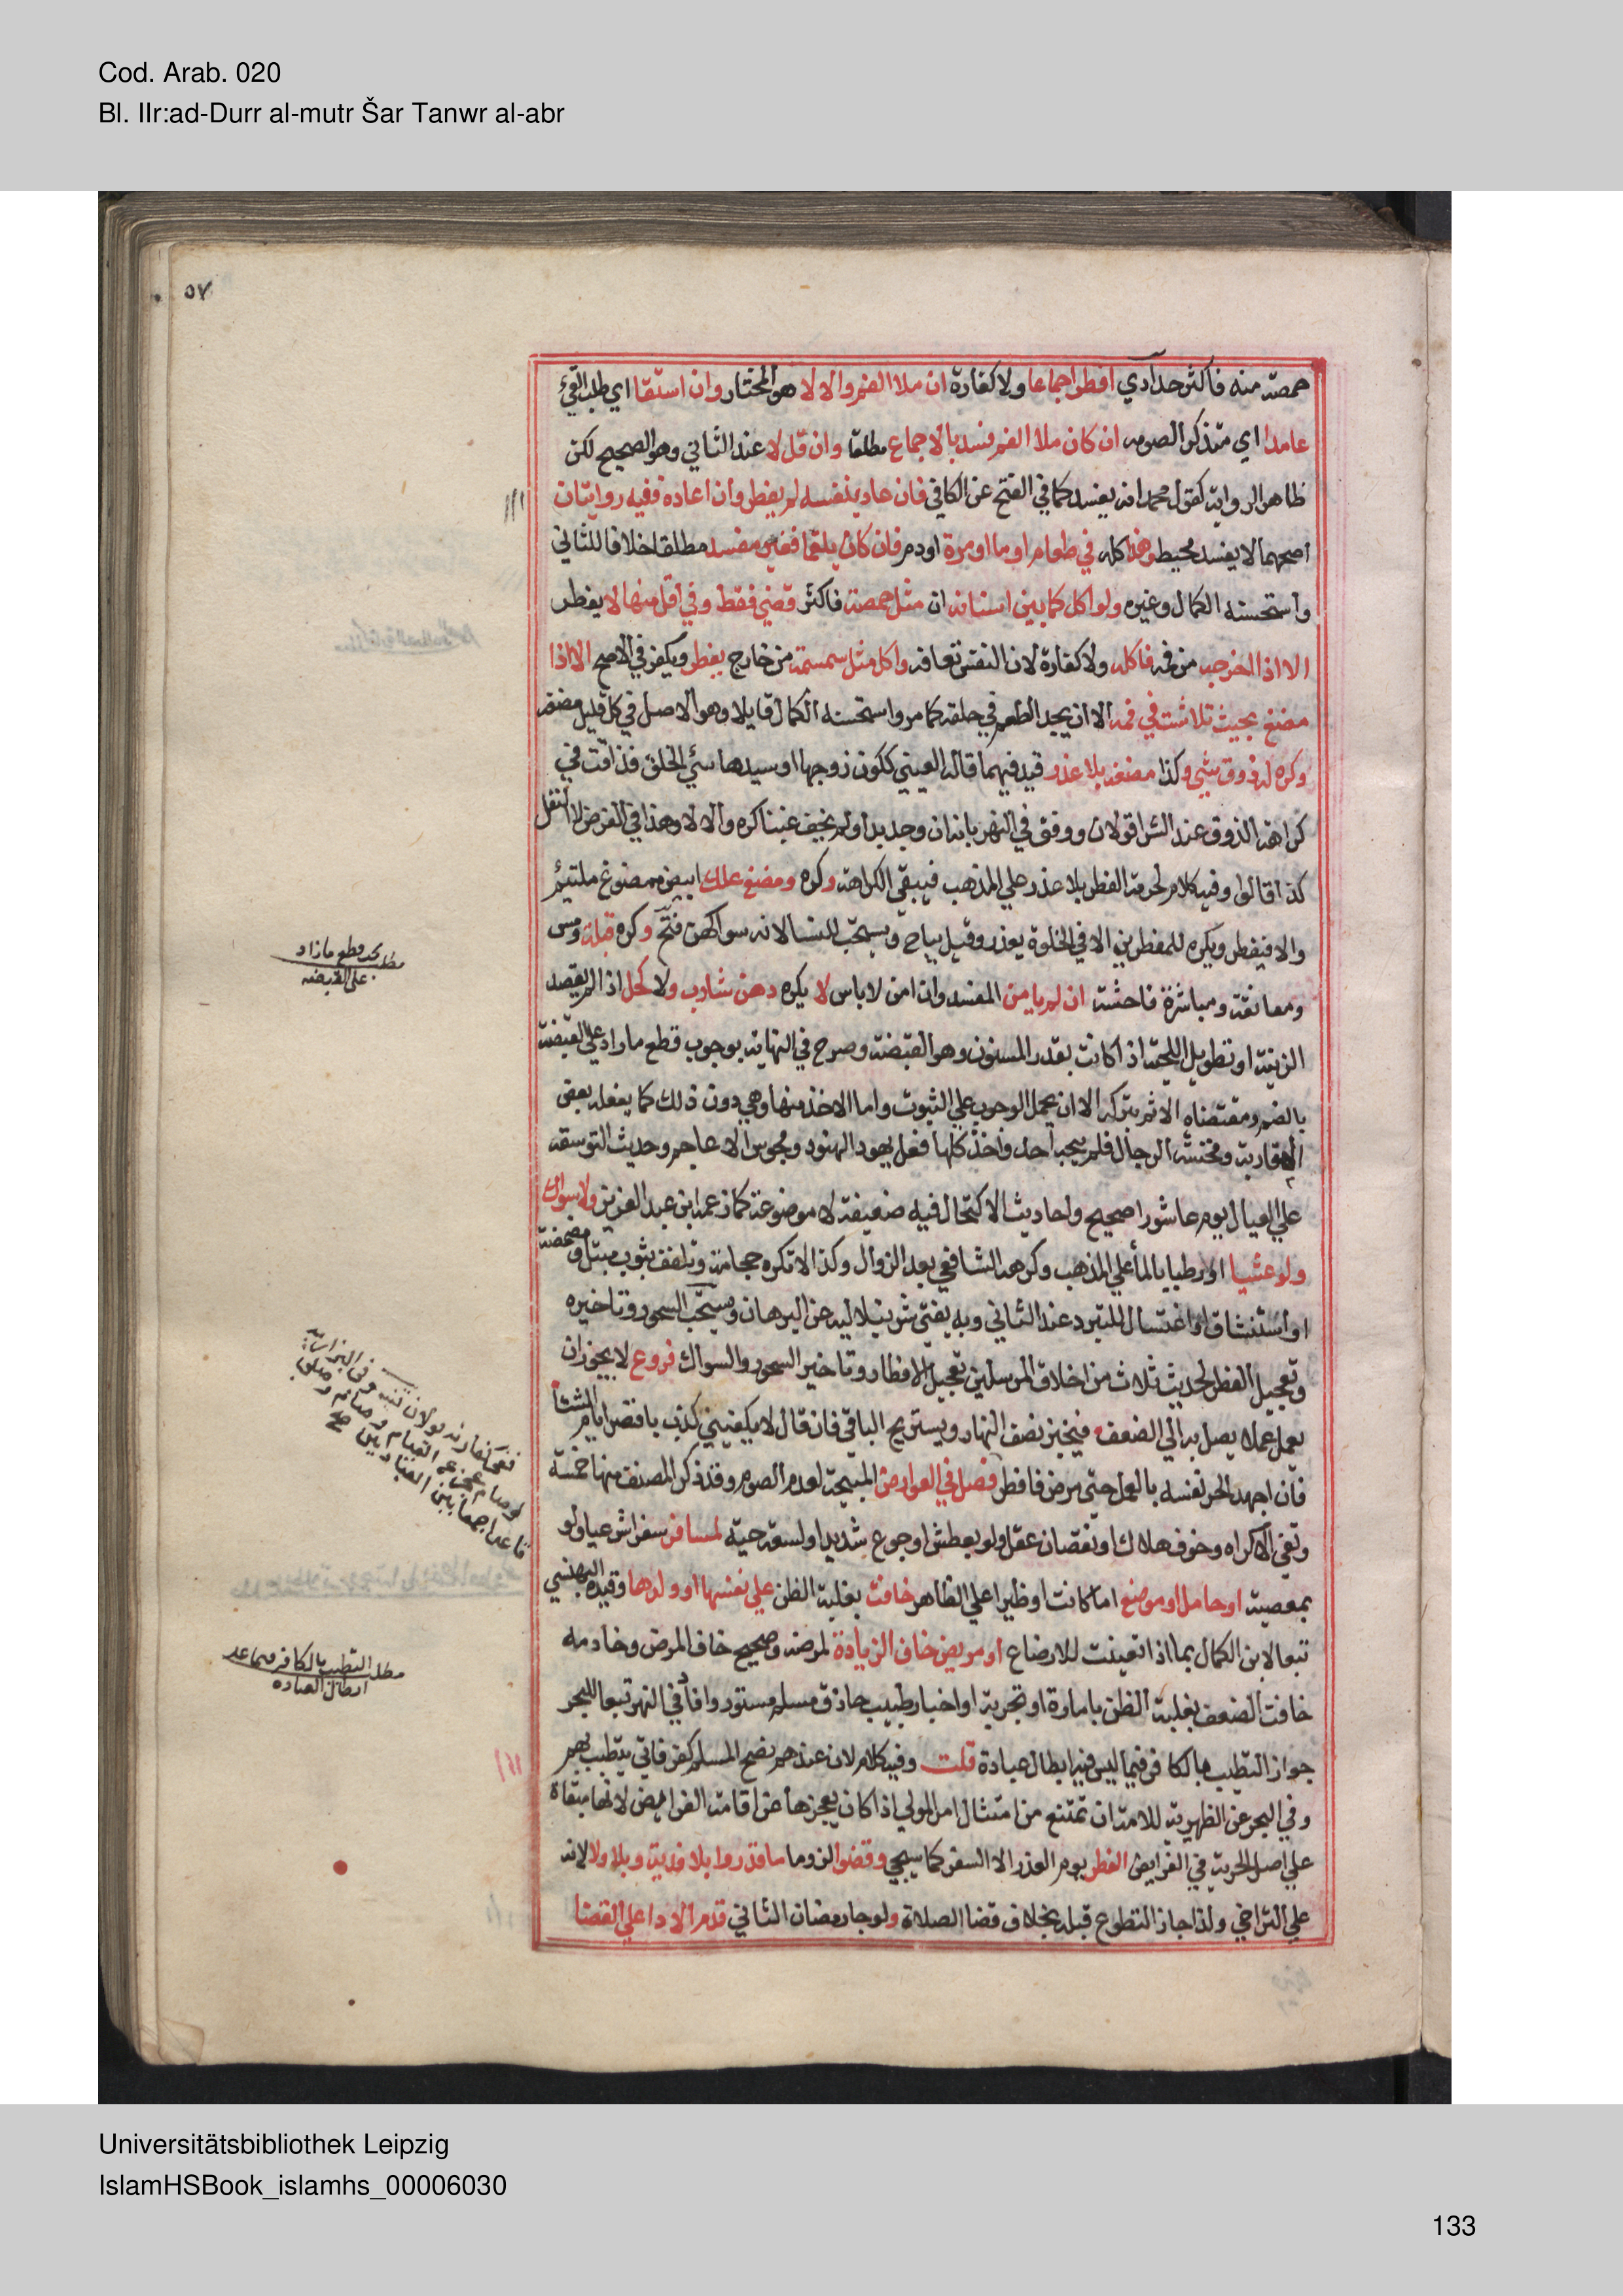 Cod. Arab. 020
Bl. IIr:ad-Durr al-mutr Šar Tanwr al-abr
٥٧
حمصة منه فاكثر حدادي افطر اجماعا ولا كفارة ان ملا الفم والا لا هو المختار وان استقا اي طلب القيء
عامدا اي متذكر الصومه ان كان ملا الفم فسد بالاجماع مطلقا وان قل لا عند الثاني وهو الصحيح لكن
ظاهر الرواية كقول محمد انه يفسد كما في الفتح عن الكافي فان عاد بنفسه لم يفطر وان اعاده ففيه روايتان
اصحهما لا يفسد محيط وهذا كله في طعام او ما او مرة او دم فان كان بلغما فغير مفسد مطلقا خلافا للثاني
واستحسنه الكمال وغيره ولو اكل كما بين اسنانه ان مثل حمصة فاكثر قضي فقط وفي اقل منها لا يفطر
الا اذا اخرجه من فمه فاكله ولا كفارة لان النفس تعافه واكل مثل سمسمة من خارج يفطر ويكفر في الاصح الا اذا
مضغ بحيث تلاشت في فمه الا ان يجد الطعم في حلقه كما مر واستحسنه الكمال قايلا وهو الاصل في كل قليل مضغه
وكره له ذوق شي وكذا مضغه بلا عذر قيد فيهما قاله العيني ككون زوجها او سيدها سئ الخلق فذاقت في
كراهة الذوق عند الشرا قولان ووفق في النهر بانه ان وجد بدا ولم يخف غبنا كره والا لا وهذا في الفرض لا النفل
كذا قالوا وفيه كلام لحرمة الفطر بلا عذر علي المذهب فيبقي الكراهة وكره ومضغ علك ابيض ممضوغ ملتئم
والا فيفطر ويكره للمفطرين الا في الخلوة بعذر وقيل يباح ويستحب للنسا لانه سواكهن فتح وكره قبلة ومس
ومعانقة ومباشرة فاحشة ان لم يامن المفسد وان امن لا باس لا يكره دهن شارب ولا كحل اذا لم يقصد
الزينة او تطويل اللحية اذا كانت بقدر المسنون وهو القبضة وصرح في النهاية بوجوب قطع ما زاد علي القبضة
بالضم ومقتضاه الاثم بتركه الا ان يحمل الوجوب علي الثبوت واما الاخذ منها وهي دون ذلك كما يفعله بعض
المغاربة ومخنثة الرجال فلم يبحه احد واخذ كلها فعل يهود الهنود ومجوس الاعاجم وحديث التوسعة
علي العيال يوم عاشورا صحيح واحاديث الاكتحال فيه ضعيفة لا موضوعة كما زعمه ابن عبد العزيز ولا سواك
ولو عشيا او رطبا بالما علي المذهب وكرهه الشافعي بعد الزوال وكذا لا تكره حجامة وتلفف بثوب مبتل ومضمضة
او استنشاق او اغتسال للتبرد عند الثاني وبه يفتي شرنبلاليه عن البرهان ويستحب السحور وتاخيره
وتعجيل الفطر لحديث ثلاث من اخلاق المرسلين تعجيل الافطار وتاخير السحور والسواك فروع لا يجوز ان
يعمل عملا يصل به الي الضعف فيخبز نصف النهار ويستريح الباقي فان قال لا يكفيني كذب باقصر ايام الشتا
فان اجهد الحر نفسه بالعمل حتي مرض فافطر فصل في العوارض المبيحة لعدم الصوم وقد ذكر المصنف منها خمسة
وبقي الاكراه وخوف هلاك او نقصان عقل ولو بعطش او جوع شديد او لسعة حية لمسافر سفرا شرعيا ولو
بمعصية او حامل او مرضع اما كانت او ظيرا علي الظاهر خافت بغلبة الظن علي نفسها او ولدها وقيده البهنسي
تبعا لابن الكمال بما اذا تعينت للارضاع او مريض خاف الزيادة لمرضه وصحيح خاف المرض وخادمه
خافت الضعف بغلبة الظن بامارة او تجربة او اخبار طبيب حاذق مسلم مستور وافاد في النهر تبعا للبحر
جواز التطبيب بالكافر فيما ليس فيه ابطال عبادة قلت وفيه كلام لان عندهم نصح المسلم كفر فاني يتطبب بهم
وفي البحر عن الظهيرية للامة ان تمتنع من امتثال امر المولي اذا كان يعجزها عن اقامة الفرايض لانها مبقاة
علي اصل الحرية في الفرايض الفطر يوم العذر الا السفر كما سيجي وقضوا لزوما ما قدروا بلا فدية وبلا ولا لانه
علي التراخي ولذا جاز التطوع قبله بخلاف قضا الصلاة ولو جا رمضان الثاني قدم الادا علي القضا
مطلب قطع ما زاد
على القبضه
مطلب التطبب بالكافر فيما عدا
ابطال العباده
Universitätsbibliothek Leipzig
IslamHSBook_islamhs_00006030
133